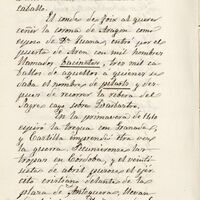 caballo.
El conde de Foix al querer
ceñir la corona de Aragon como
esposo de Dª Juana, entró por el
puerto de Aren con mil hombres
llamados bacinetes, tres mil ca
ballos de aquellos a quienes se
daba el nombre de pillarts, y des
pues de recorrer la ribera del
Segre cayo sobre
En la primavera de 1410
espiró la tregua con Granada,
y Castilla emprendió otra vez
la guerra. Reunieronse las
tropas en Córdoba, y el veinti
de abril pusose el ejér
cito cristiano delante de la
plaza de Antequera, llevan